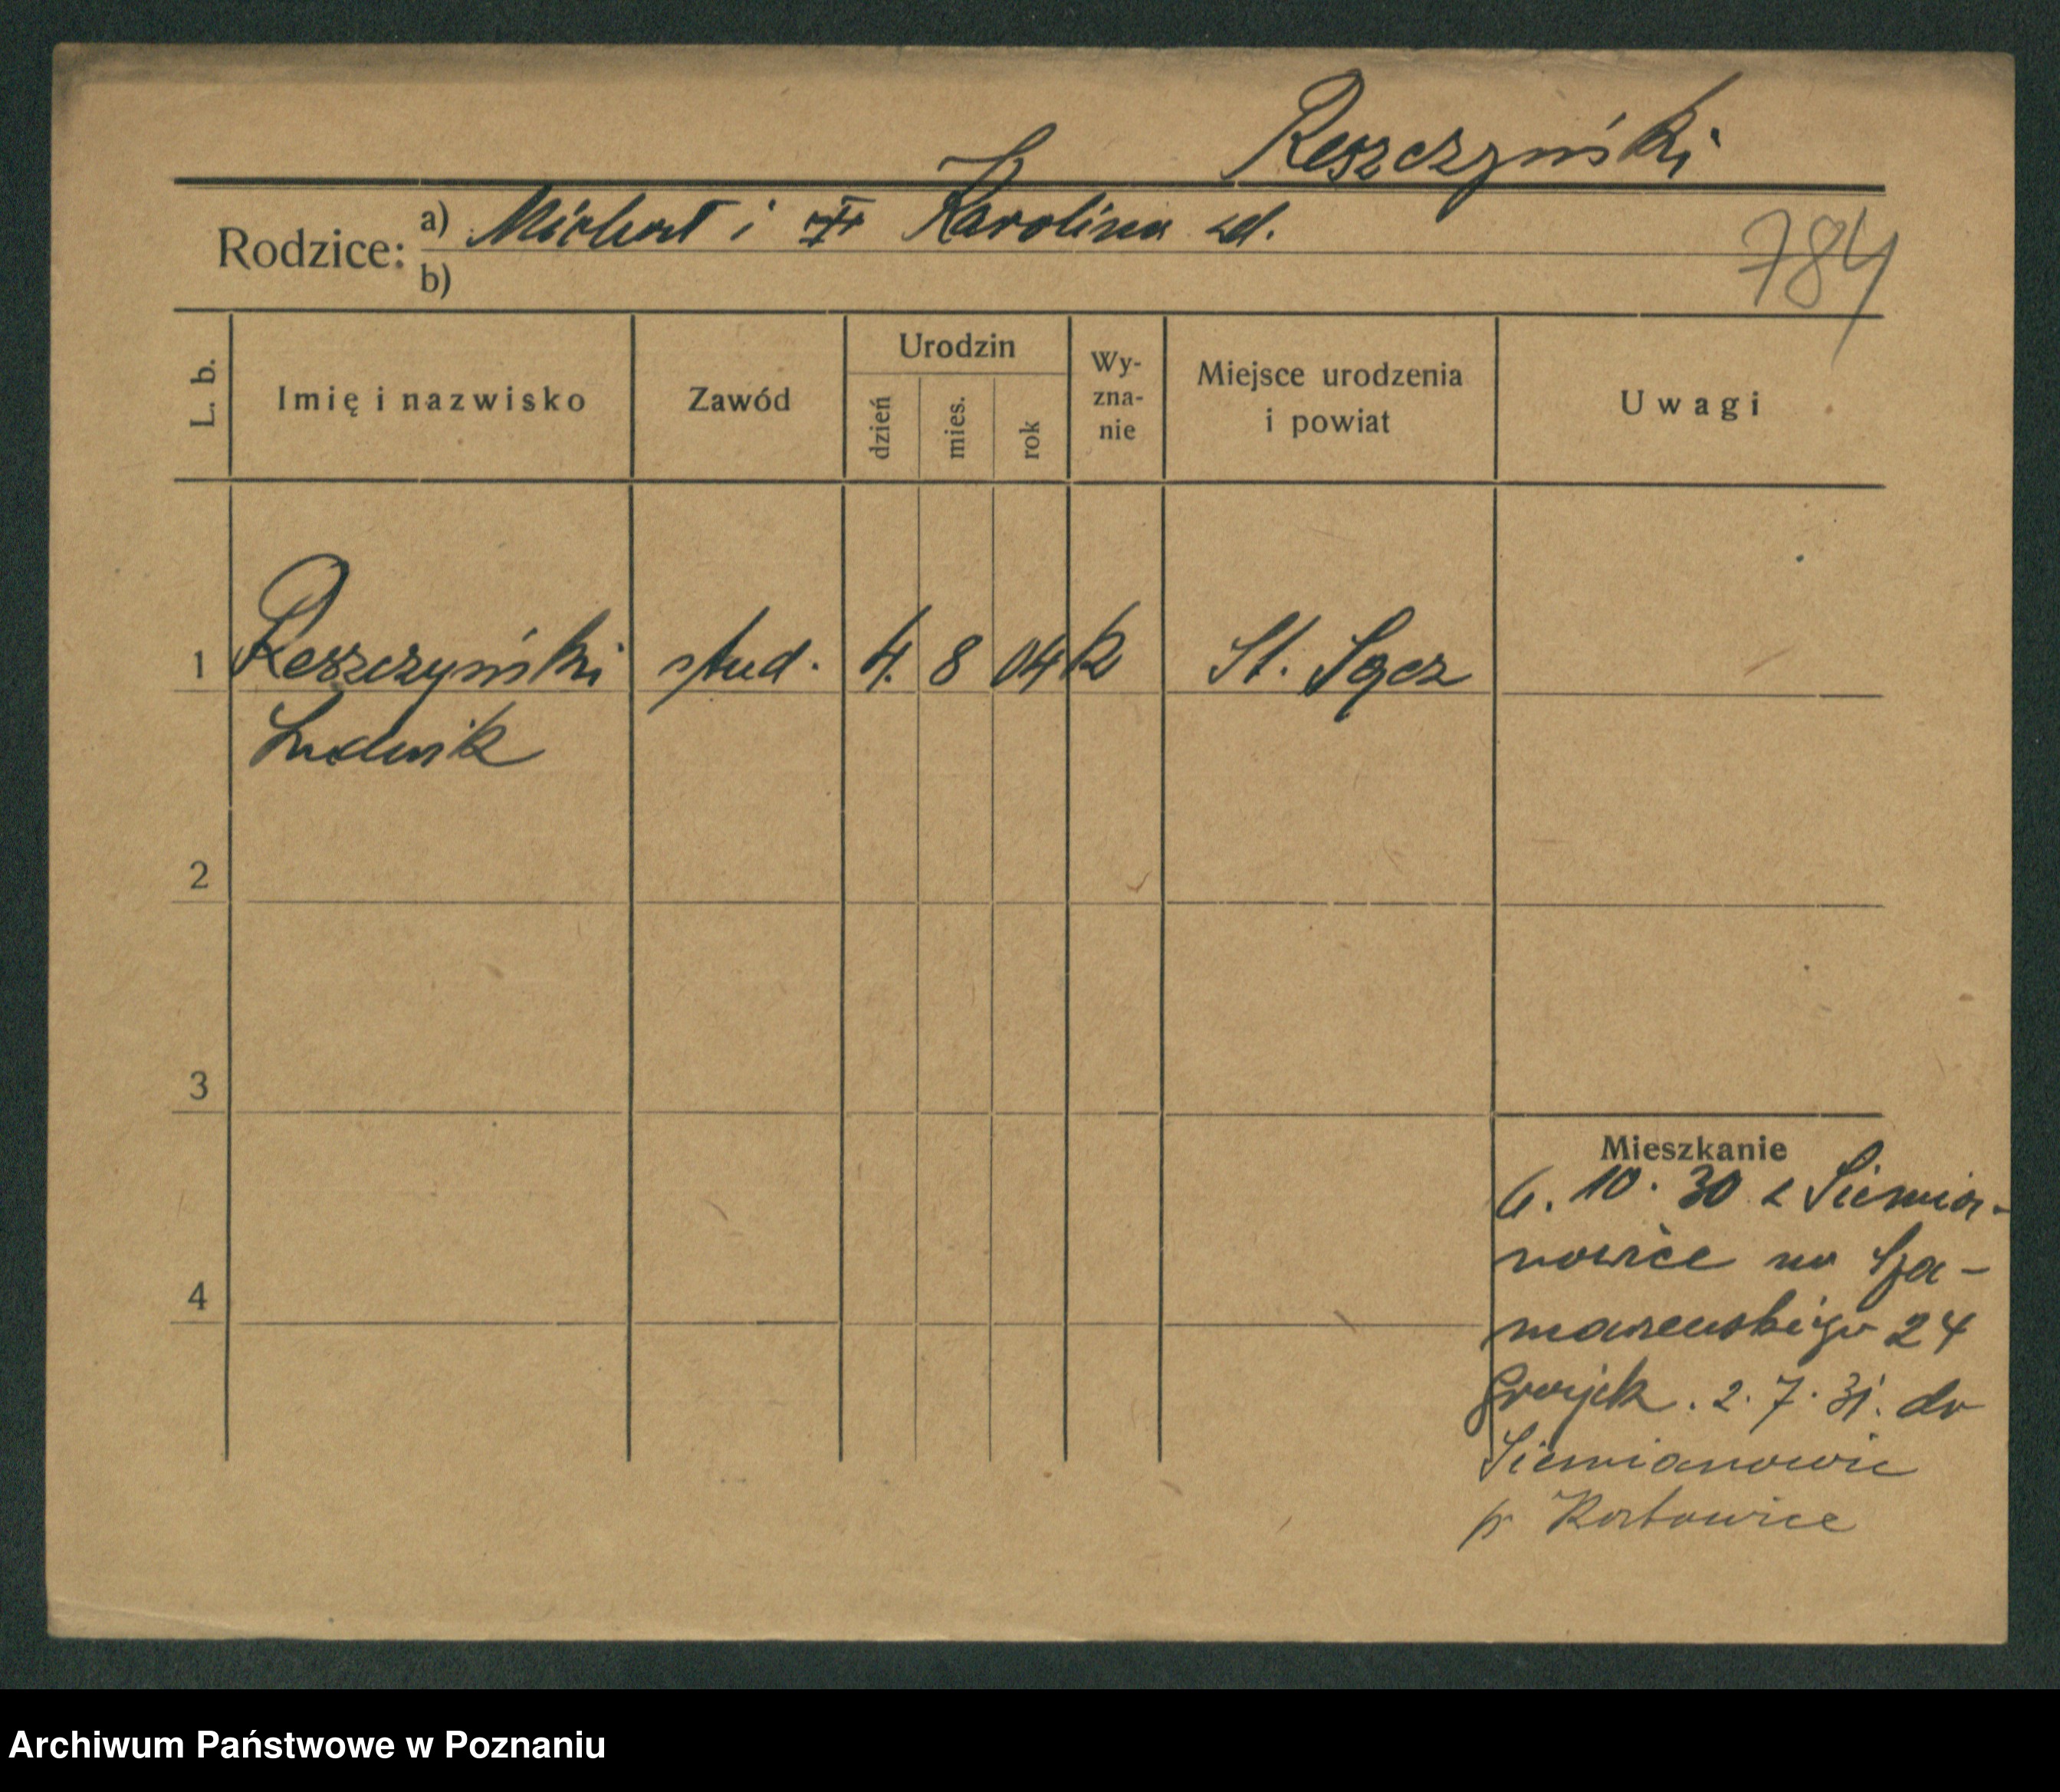 Reszczyński
Rodzice: a) Michał i Karolina zd.
b)
784
L. b.
Imię i nazwisko
Zawód
Urodzin
dzień
mies.
rok
Wy-
zna-
nie
Miejsce urodzenia
i powiat
Uwagi
1 Reszczyński stud. 4. 8 04 k St. Sącz
Ludwik
2
3
4
Mieszkanie
6. 10. 30 z Siemia-
nowice na Sza-
marzewskiego 24
2. 7. 31. do
Siemianowic
p Katowice
Archiwum Państwowe w Poznaniu